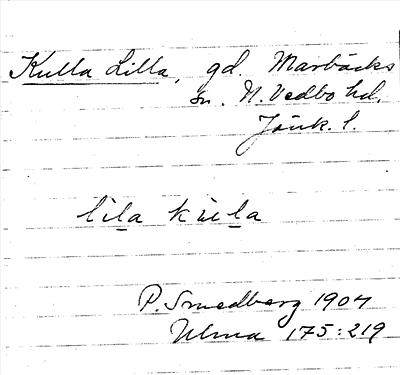 Kulla Lilla, gd. Marbäcks
sn. N. Vedbo hd.
Jönk. l.
lila kula
P. Smedberg 1904
Ulma 175:219